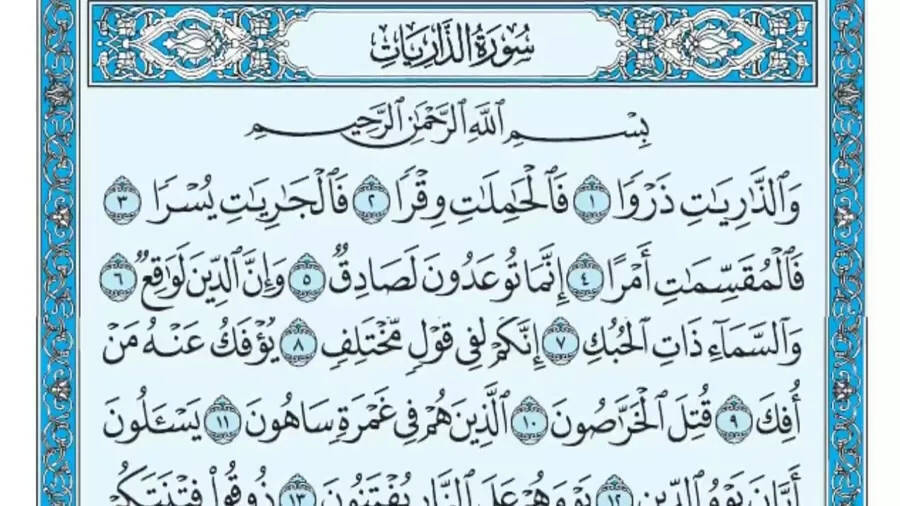 سُورَةُ الذَّارِيَاتِ
بِسْمِ ٱللَّهِ ٱلرَّحْمَٰنِ ٱلرَّحِيمِ
وَٱلذَّٰرِيَٰتِ ذَرْوٗا ١ فَٱلْحَٰمِلَٰتِ وِقْرٗا ٢ فَٱلْجَٰرِيَٰتِ يُسْرٗا ٣
فَٱلْمُقَسِّمَٰتِ أَمْرًا ٤ إِنَّمَا تُوعَدُونَ لَصَادِقٞ ٥ وَإِنَّ ٱلدِّينَ لَوَٰقِعٞ ٦
وَٱلسَّمَآءِ ذَاتِ ٱلْحُبُكِ ٧ إِنَّكُمْ لَفِى قَوْلٖ مُّخْتَلِفٖ ٨ يُؤْفَكُ عَنْهُ مَنْ
أُفِكَ ٩ قُتِلَ ٱلْخَرَّٰصُونَ ١٠ ٱلَّذِينَ هُمْ فِى غَمْرَةٖ سَاهُونَ ١١ يَسْـَٔلُونَ
أَيَّانَ يَوْمُ ٱلدِّينِ ١٢ يَوْمَ هُمْ عَلَى ٱلنَّارِ يُفْتَنُونَ ١٣ ذُوقُوا۟ فِتْنَتَكُمْ